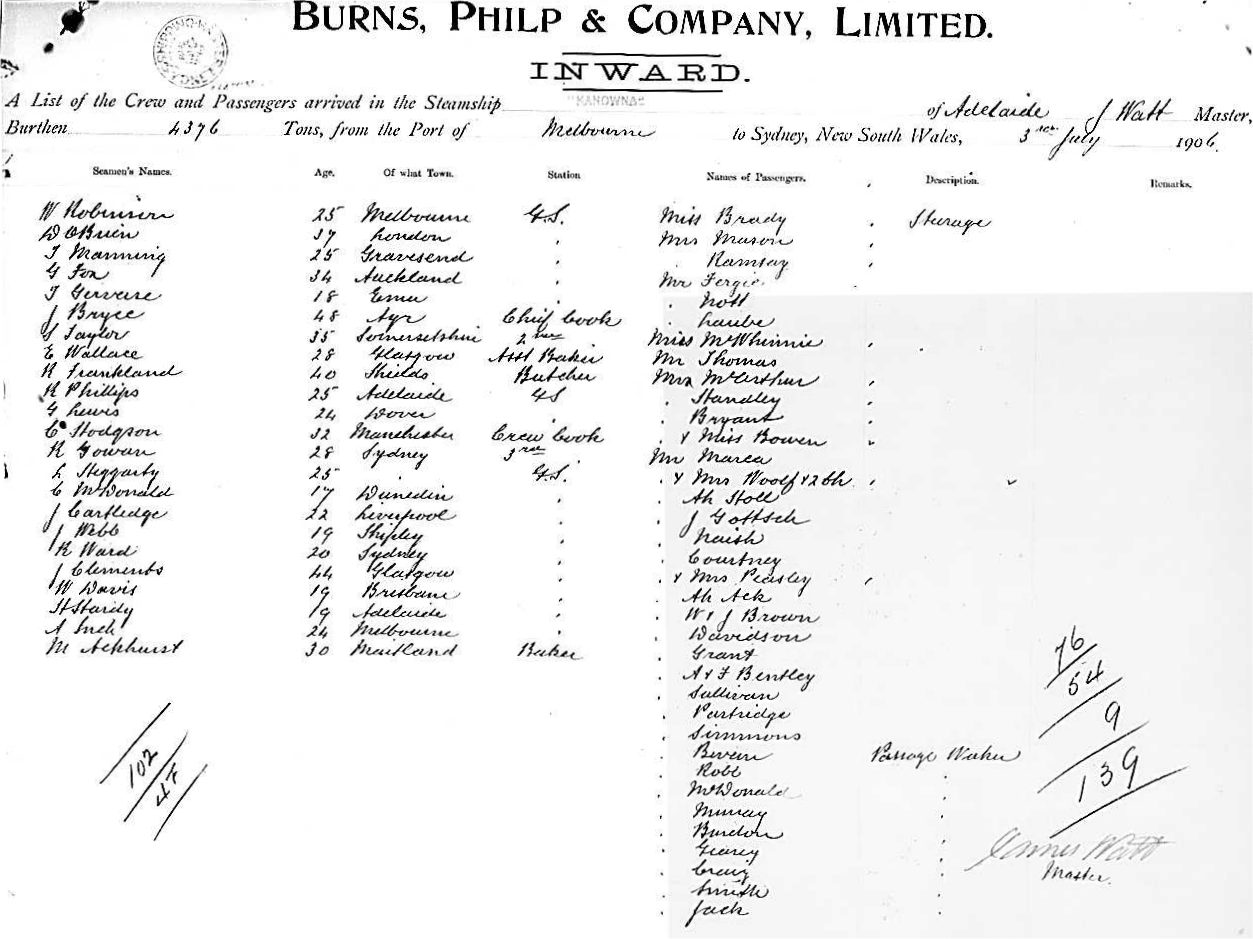 BURNS, PHILP & COMPANY, LIMITED.
INWARD.
A List of the Crew and Passengers arrived in the Steamship "KANOWNA" of Adelaide J Watt Master,
Burthen 4376 Tons, from the Port of Melbourne to Sydney, New South Wales, 3rd July 1906.
Seamen's Names. Age. Of what Town. Station Names of Passengers. Description. Remarks.
W Robinson 25 Melbourne G.S. Miss Brady Steerage
D OBrien 37 London Mrs Mason
T Manning 25 Gravesend Ramsay
G Fox 34 Auckland Mr Fergie
T Gervase 18 Emu Nott
J Bryce 48 Ayr Chief Cook Laube
S Taylor 35 Somersetshire 2nd Miss McWhinnie
E Wallace 28 Glasgow Asst Baker Mr Thomas
R Frankland 40 Shields Butcher Mrs McArthur
R Phillips 25 Adelaide GS Standley
G Lewis 24 Dover Bryant
C Hodgson 32 Manchester Crew Cook & Miss Bowen
R Gowan 28 Sydney 3rd Mr Marca
L Heggarty 25 G.S. & Mrs Woolf & 2 ch
C McDonald 17 Dunedin Ah Stoll
J Cartledge 22 Liverpool J Gottsch
J Webb 19 Shipley Naish
R Ward 20 Sydney Courtney
J Clements 44 Glasgow & Mrs Peasley
W Davis 19 Brisbane Ah Ack
H Hardy 19 Adelaide W & J Brown
A Inch 24 Melbourne Davidson
M Ackhurst 30 Maitland Baker Grant
A & F Bentley
Sullivan
Partridge
Simmons
Bevan Passage Worker
Robb
McDonald
Murray
Burdon
Gearey
Craig
Smith
Jack
102
47
76
54
9
139
James Watt
Master.